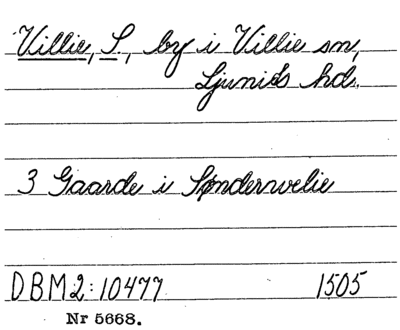 Villie, S., by i Villie sn,
Ljunids hd.
3 Gaarde i Søndervelie
DBM2:10477 1505
Nr 5668.